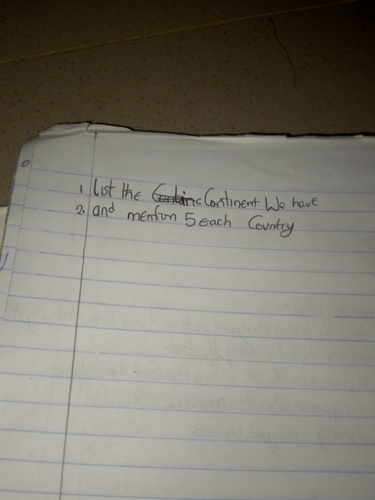 1. List the Continent We have
2. and mention 5 each Country